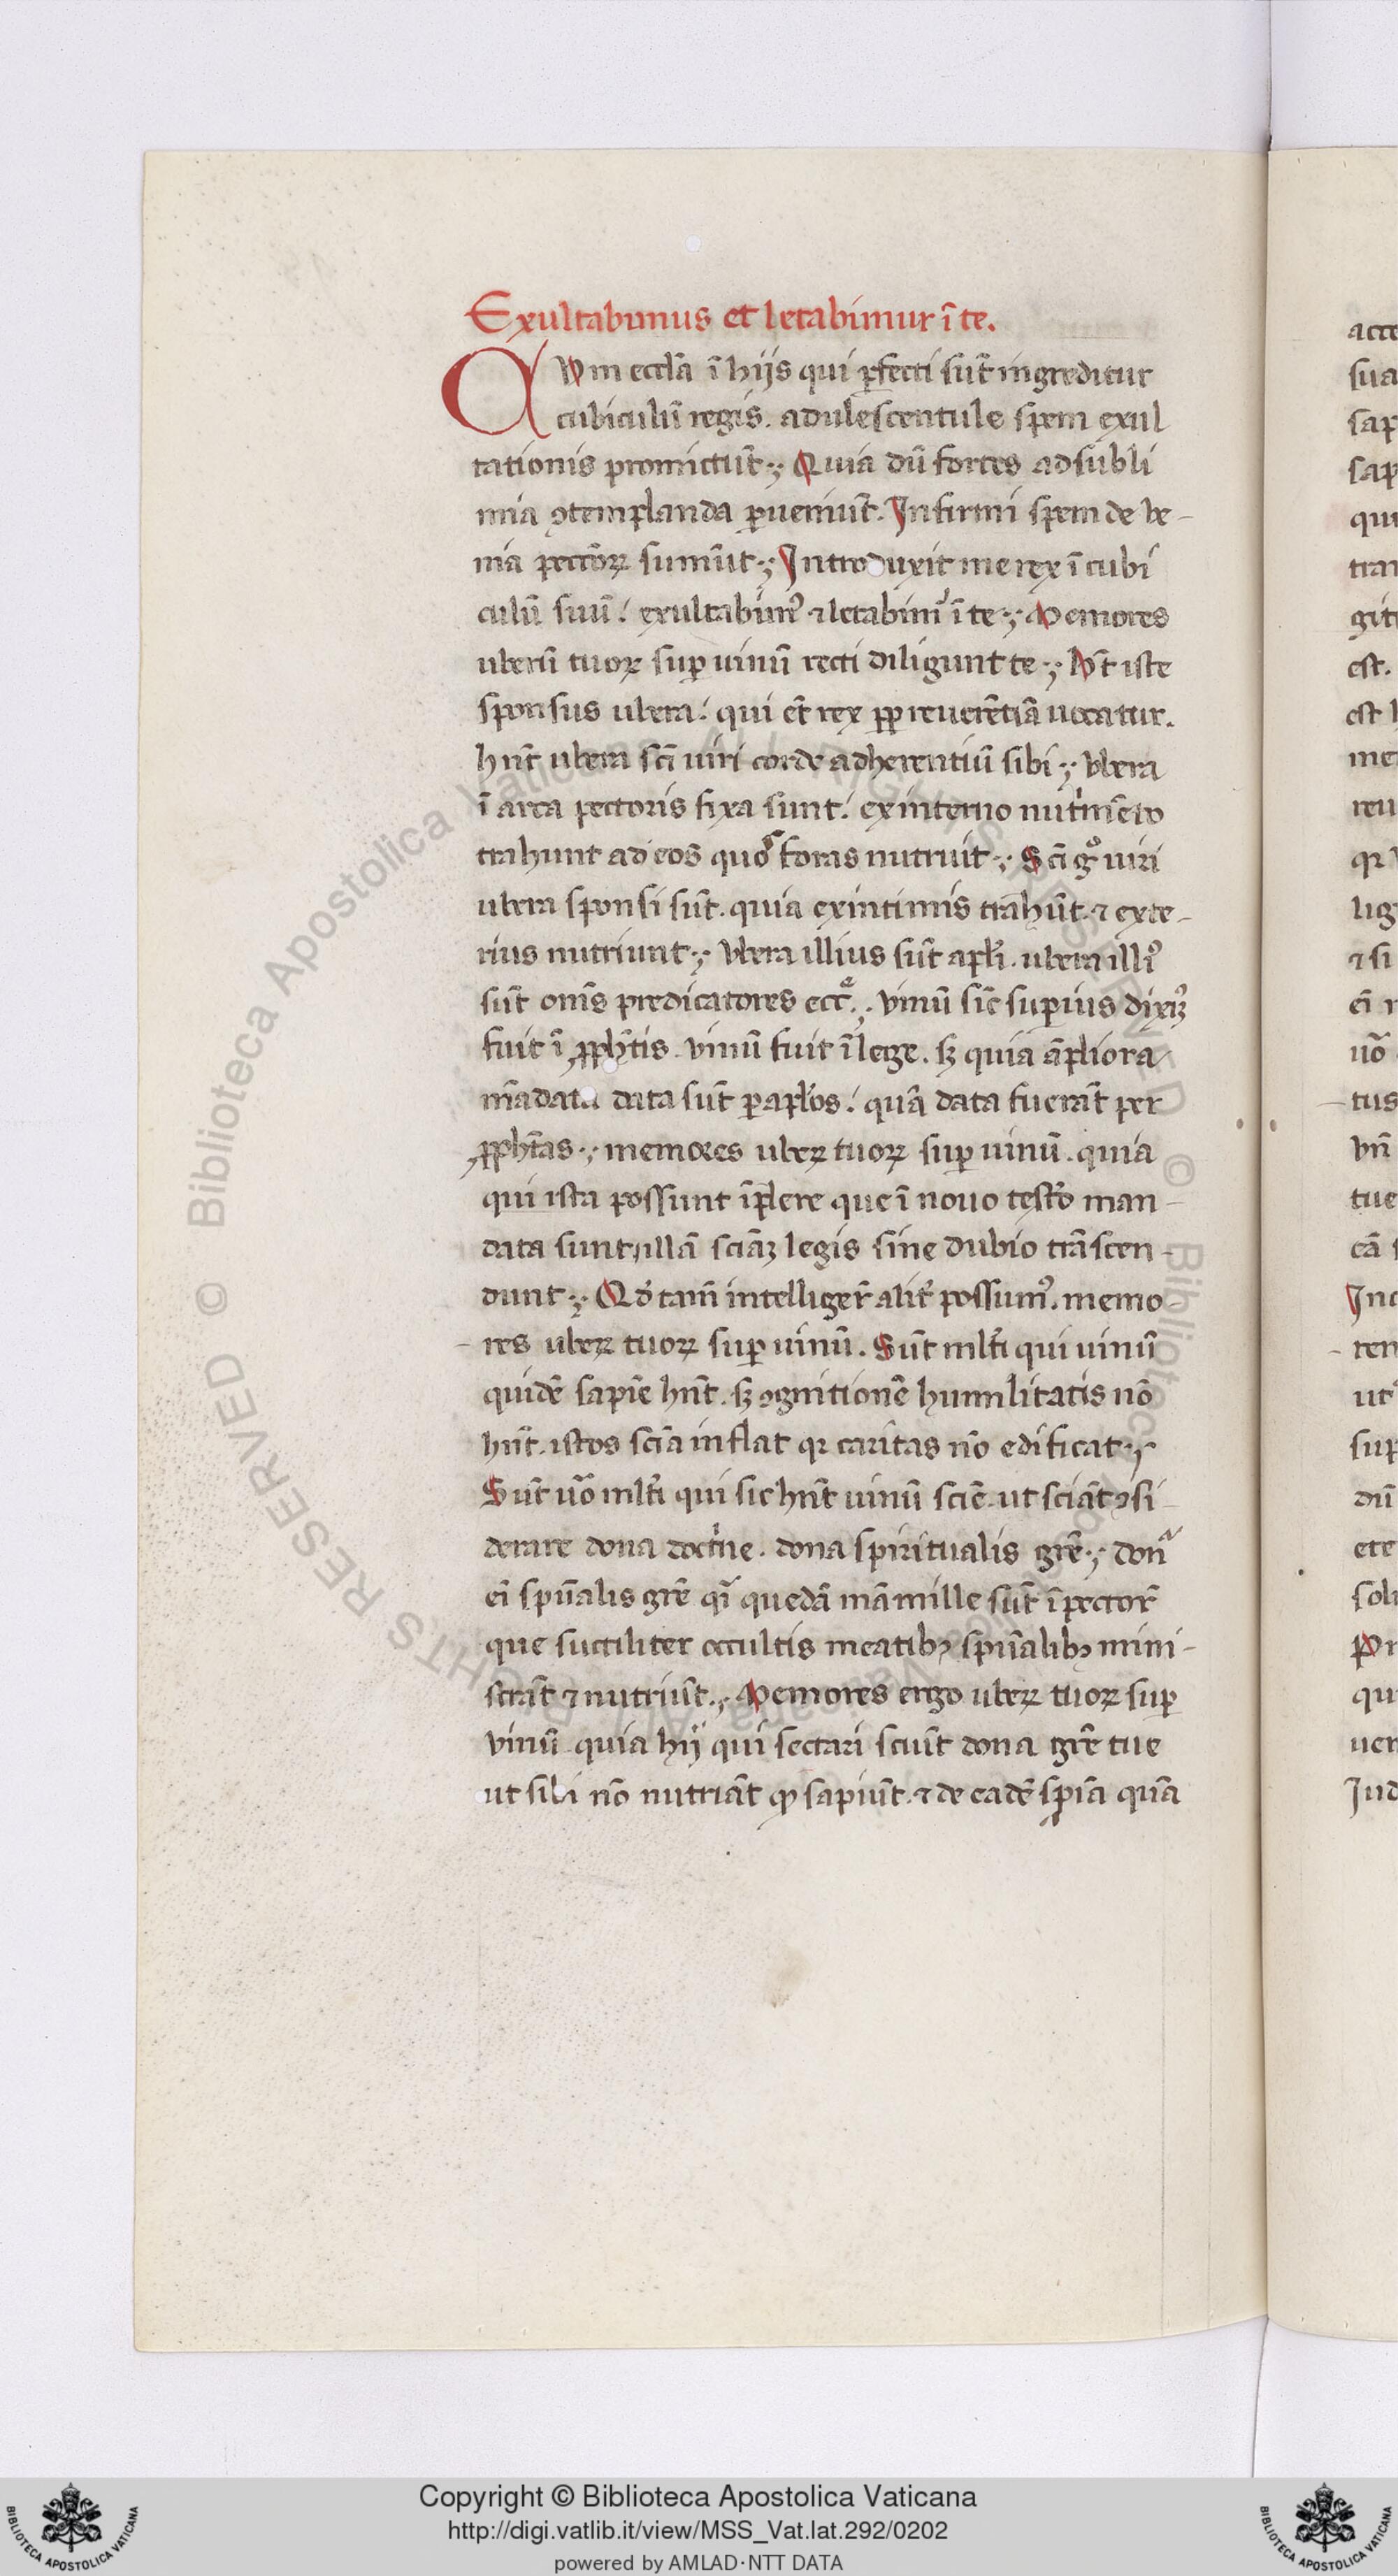 Exultabimus et letabimur ĩ te.
QUm eccłia ĩ hijs qui ꝑfecti sũt ingreditur
cubiculũ regis. adulescentule spem exul
tationis promictũt. Quia dũ fortes ad subli
mia ꝯtemplanda ꝑueniũt. Infirmi spem de ve-
nia pecctõꝝ sumũt. Introduxit me rex ĩ cubi
culũ suũ. exultabimꝰ ⁊ letabimꝰ ĩ te. Memores
uberũ tuoꝝ suꝑ uinũ recti diligunt te. Hñt iste
sponsus ubera. qui et̃ rex ꝓp reuerẽtiã uocatur.
hñt ubera sc̃i uiri corde adherentiũ sibi. Ubera
ĩ arca pectoris fixa sunt. ex interno nutⁱmẽto
trahunt ad eos quos foras nutriũt. Sc̃i gᵒ uiri
ubera sponsi sũt. quia ex intimis trahũt. ⁊ exte-
rius nutriunt. Ubera illius sũt apłi. ubera illiꝰ
sũt om̃s predicatores eccᵉ. vinũ sic̃ suꝑius dixiꝰ
fuit ĩ ꝓph̃tis. vinũ fuit ĩ lege. sꝫ quia ãpliora
mãdata data sũt ꝑ apłos. quã data fuerãt per
ꝓph̃tas. memores ubeꝝ tuoꝝ suꝑ uinũ. quia
qui ista possunt ĩplere que ĩ nouo testo̊ man-
data sunt, illã sciãꝫ legis sine dubio trãscen-
dunt. Qđ tam̃ intelliger̃ alit̃ possumꝰ. memo-
res ubeꝝ tuoꝝ suꝑ uinũ. Sũt młti qui uinũ
quidẽ sapiẽ hñt. sꝫ ꝯgnitionẽ humilitatis nõ
hñt. istos scĩa inflat qꝛ caritas nõ edificat.
Sũt uᵒ młti qui sic hñt uinũ sciẽ. ut sciãt ꝯsi
derare dona doctⁱne. dona spiritualis gr̃e. donᵃ
ei̇̃ spũalis gr̃e qⁱ quedã mãmille sũt ĩ pector̃
que suctiliter occultis meatibꝫ spũalibꝫ mini-
strãt ⁊ nutriũt. Memores ergo ubeꝝ tuoꝝ suꝑ
vinũ. quia hij qui sectari sciũt dona gr̃e tue
ut sibi nõ nutriãt ꝙ sapiũt. ⁊ de eadẽ quã